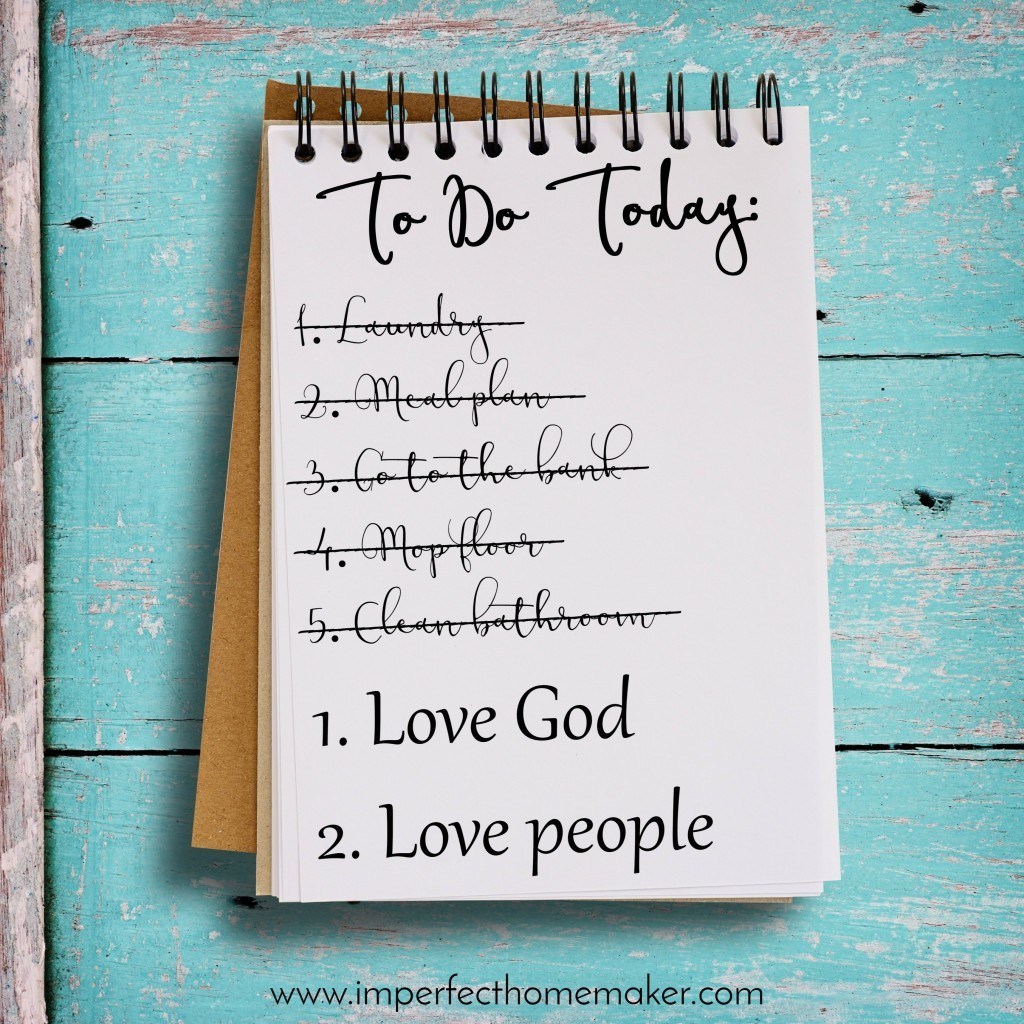 To Do Today:
1. Laundry
2. Meal plan
3. Go to the bank
4. Mop floor
5. Clean bathroom
1. Love God
2. Love people
www.imperfecthomemaker.com